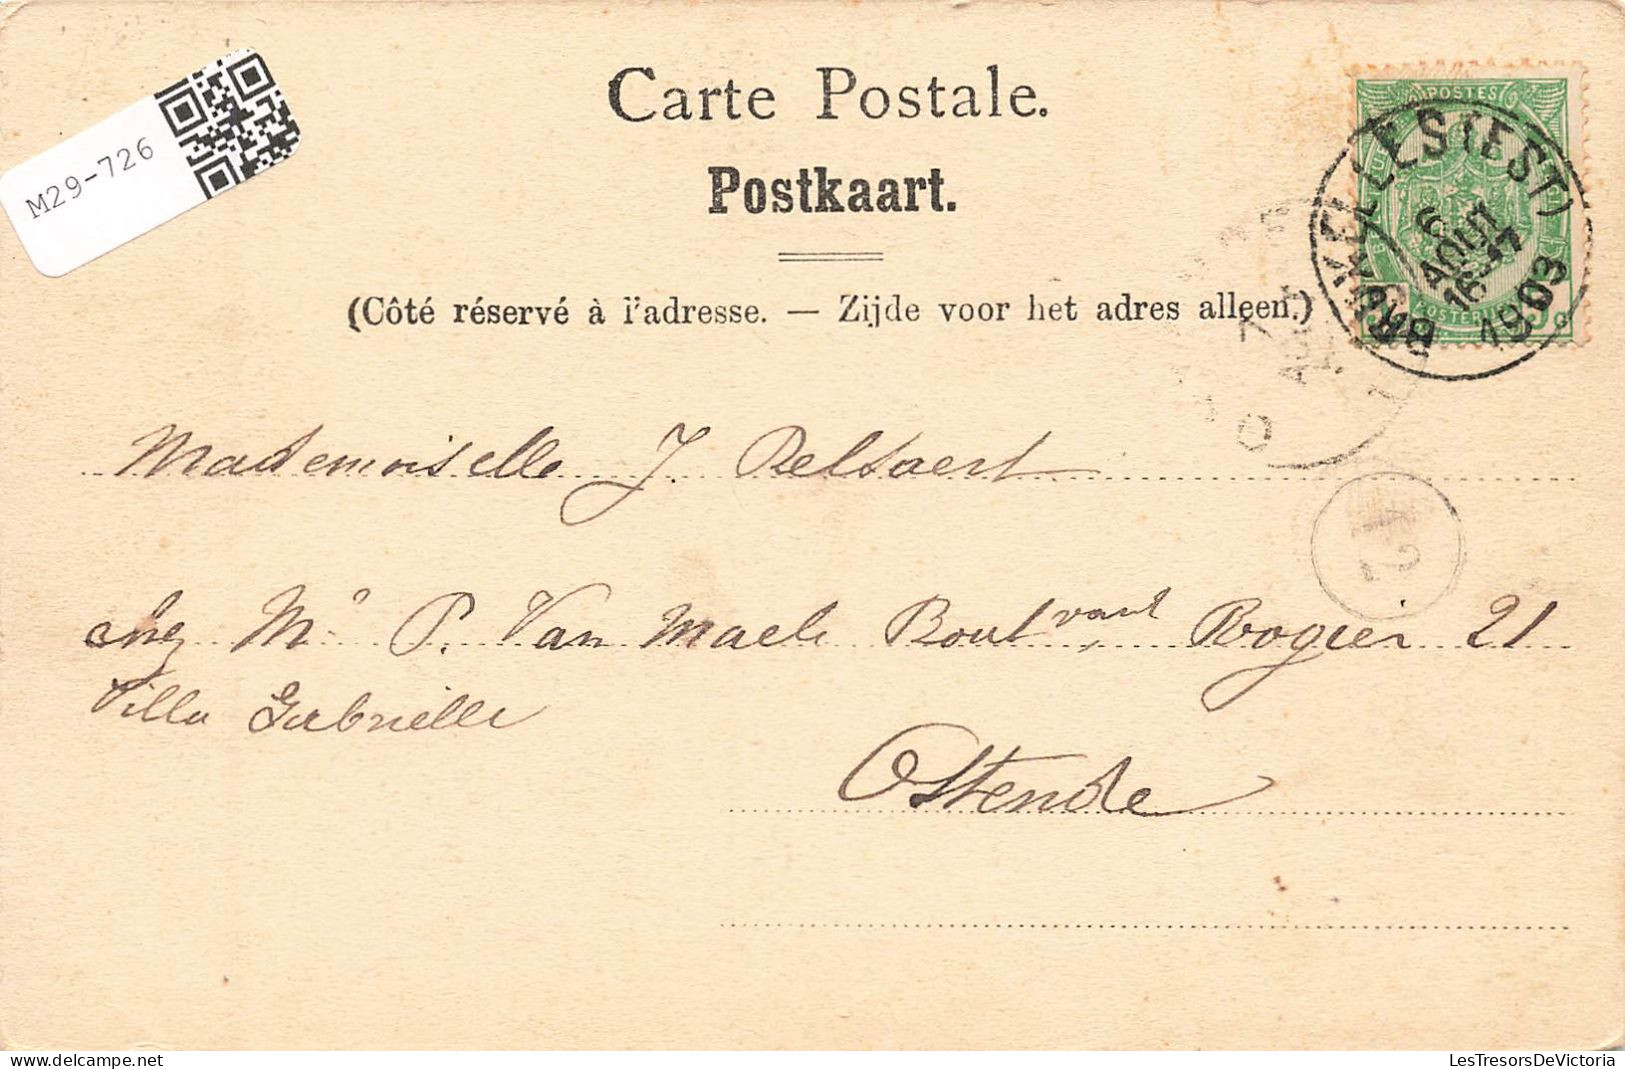 M29-726
Carte Postale.
Postkaart.
(Côté réservé à l'adresse. — Zijde voor het adres alleen.)
POSTES
BRUXELLES (EST)
6
AOUT
16-17
1903
Mademoiselle J. Pelsaert
chez Mr P. Van Maele Boulvard Rogier 21
Villa Gabrielle
Ostende
delcampe.net
LesTresorsDeVictoria